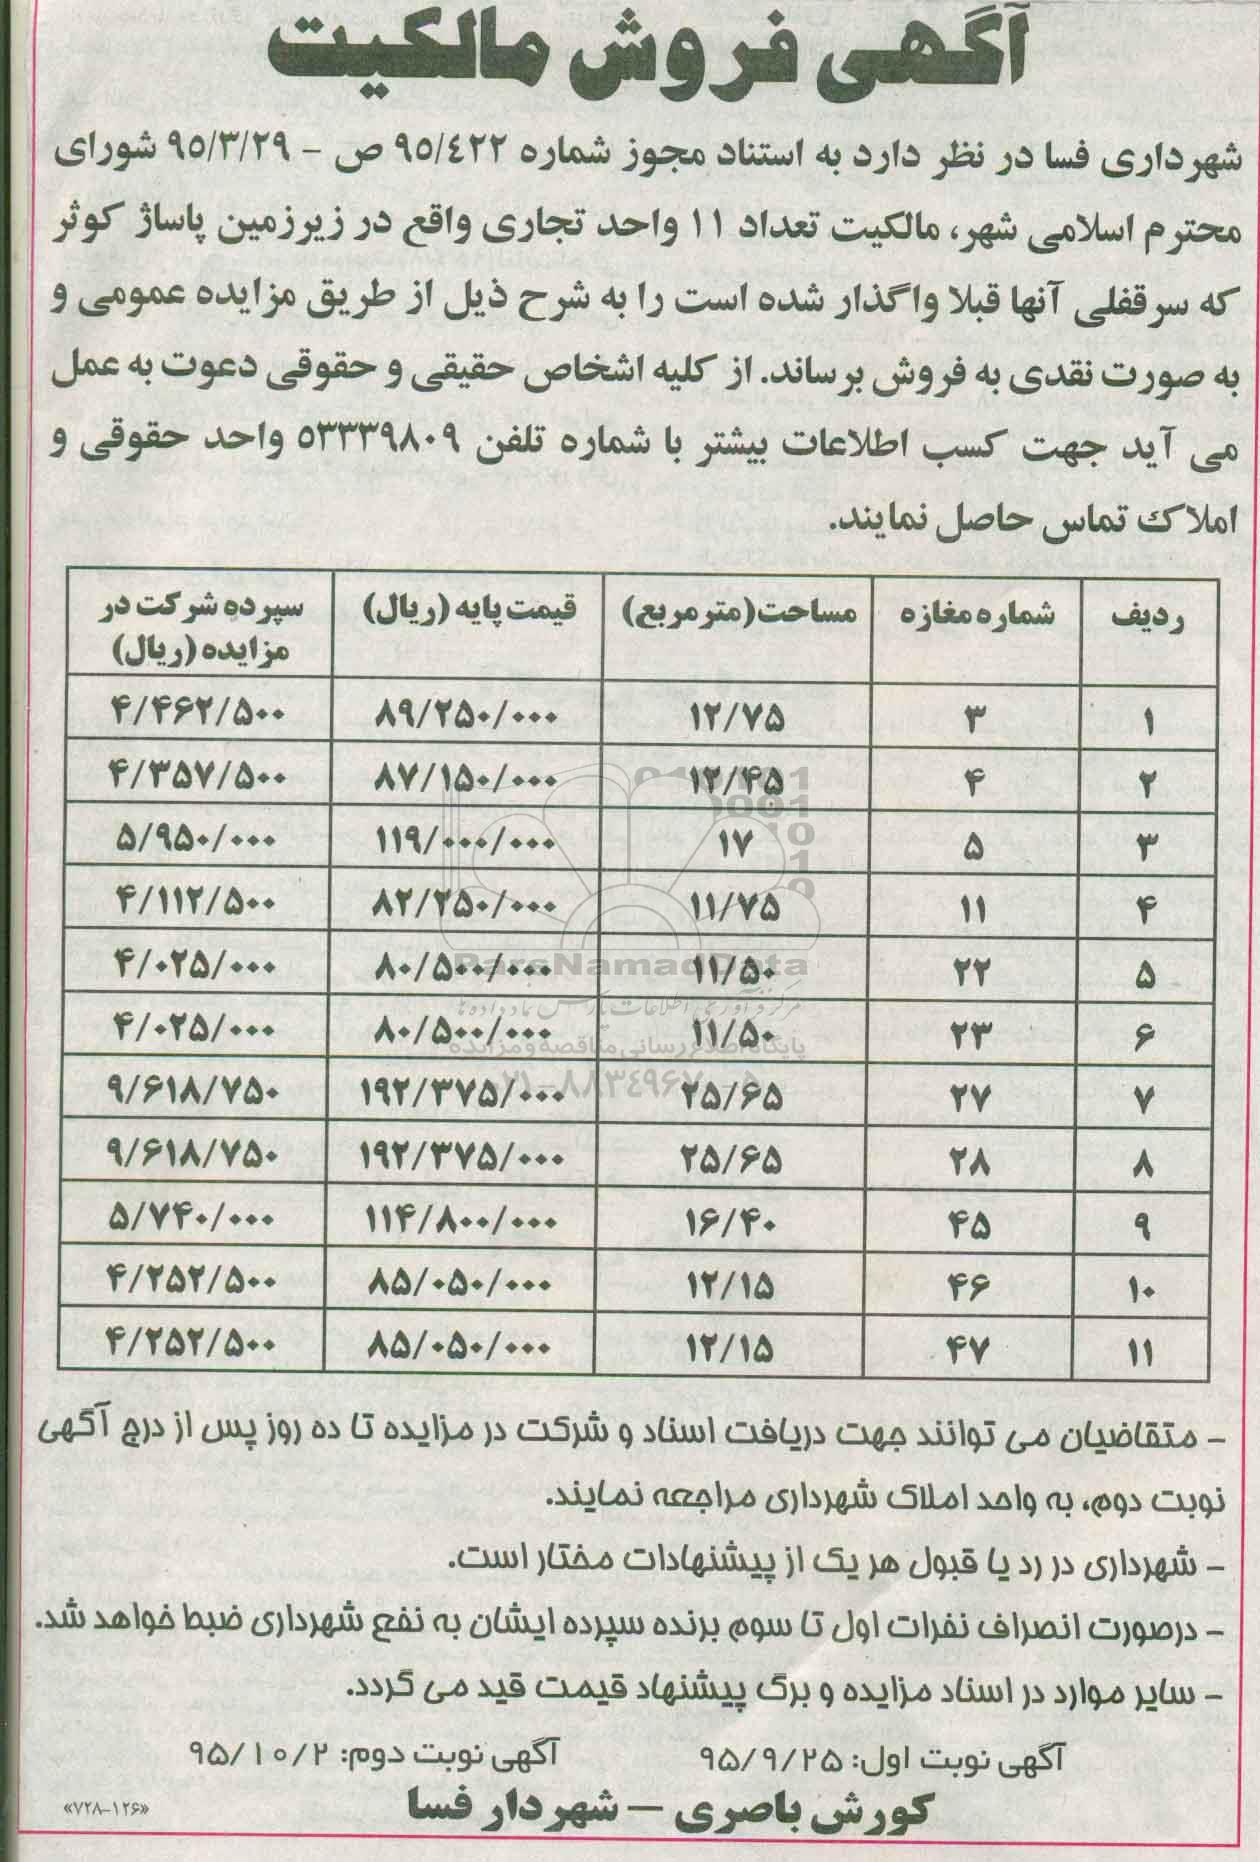 آگهی فروش مالکیت
شهرداری فسا در نظر دارد به استناد مجوز شماره ۹۵/۴۲۲ ص - ۹۵/۳/۲۹ شورای
محترم اسلامی شهر، مالکیت تعداد ۱۱ واحد تجاری واقع در زیرزمین پاساژ کوثر
که سرقفلی آنها قبلا واگذار شده است را به شرح ذیل از طریق مزایده عمومی و
به صورت نقدی به فروش برساند. از کلیه اشخاص حقیقی و حقوقی دعوت به عمل
می آید جهت کسب اطلاعات بیشتر با شماره تلفن ۵۳۳۳۹۸۰۹ واحد حقوقی و
املاک تماس حاصل نمایند.
ردیف شماره مغازه مساحت(متر مربع) قیمت پایه (ریال) سپرده شرکت در
مزایده (ریال)
۱ ۳ ۱۲/۷۵ ۸۹/۲۵۰/۰۰۰ ۴/۴۶۲/۵۰۰
۲ ۴ ۱۲/۴۵ ۸۷/۱۵۰/۰۰۰ ۴/۳۵۷/۵۰۰
۳ ۵ ۱۷ ۱۱۹/۰۰۰/۰۰۰ ۵/۹۵۰/۰۰۰
۴ ۱۱ ۱۱/۷۵ ۸۲/۲۵۰/۰۰۰ ۴/۱۱۲/۵۰۰
۵ ۲۲ ۱۱/۵۰ ۸۰/۵۰۰/۰۰۰ ۴/۰۲۵/۰۰۰
ParsNamadData
مرکز فرآوری اطلاعات پارس نماد داده ها
۶ ۲۳ ۱۱/۵۰ ۸۰/۵۰۰/۰۰۰ ۴/۰۲۵/۰۰۰
پایگاه اطلاع رسانی مناقصه و مزایده
۰۲۱-۸۸۳۴۹۶۷۰-۵
۷ ۲۷ ۲۵/۶۵ ۱۹۲/۳۷۵/۰۰۰ ۹/۶۱۸/۷۵۰
۸ ۲۸ ۲۵/۶۵ ۱۹۲/۳۷۵/۰۰۰ ۹/۶۱۸/۷۵۰
۹ ۴۵ ۱۶/۴۰ ۱۱۴/۸۰۰/۰۰۰ ۵/۷۴۰/۰۰۰
۱۰ ۴۶ ۱۲/۱۵ ۸۵/۰۵۰/۰۰۰ ۴/۲۵۲/۵۰۰
۱۱ ۴۷ ۱۲/۱۵ ۸۵/۰۵۰/۰۰۰ ۴/۲۵۲/۵۰۰
- متقاضیان می توانند جهت دریافت اسناد و شرکت در مزایده تا ده روز پس از درج آگهی
نوبت دوم، به واحد املاک شهرداری مراجعه نمایند.
- شهرداری در رد یا قبول هر یک از پیشنهادات مختار است.
- درصورت انصراف نفرات اول تا سوم برنده سپرده ایشان به نفع شهرداری ضبط خواهد شد.
- سایر موارد در اسناد مزایده و برگ پیشنهاد قیمت قید می گردد.
آگهی نوبت اول: ۹۵/۹/۲۵ آگهی نوبت دوم: ۹۵/۱۰/۲
کورش باصری - شهردار فسا
«۷۲۸-۱۲۶»